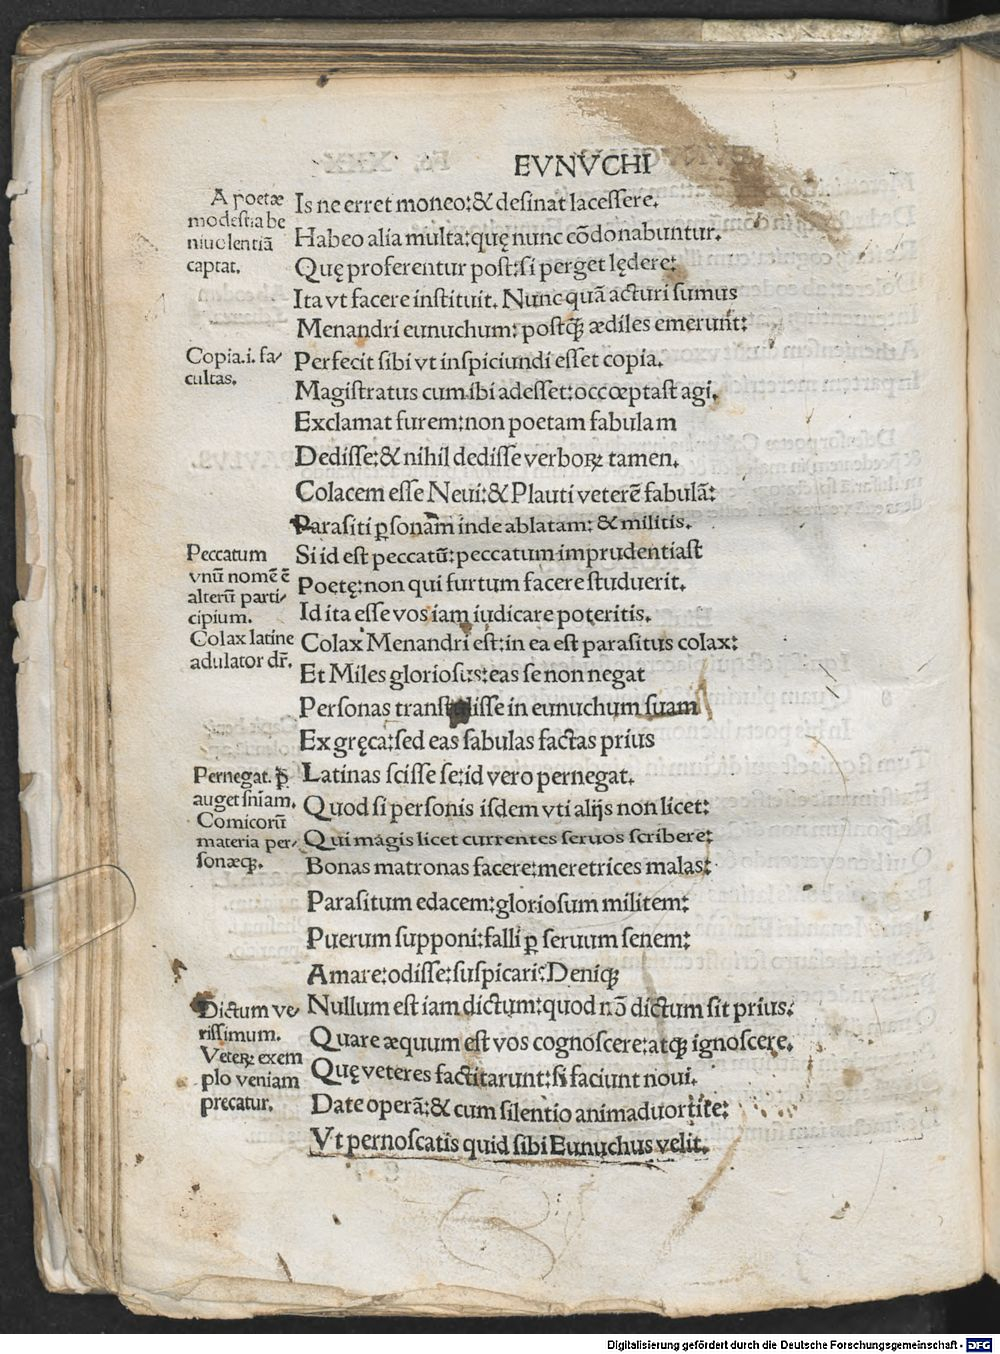 EVNVCHI
A poetæ
modestia be
niuolentiã
captat.
Is ne erret moneo: & desinat lacessere.
Habeo alia multa: quę nunc cõdonabuntur.
Quę proferentur post: si perget lędere:
Ita vt facere instituit. Nunc quã acturi sumus
Menandri eunuchum: postꝗ̃ ædiles emerunt:
Copia.i. fa/
cultas.
Perfecit sibi vt inspiciundi esset copia.
Magistratus cum ibi adesset: occœptast agi.
Exclamat furem: non poetam fabulam
Dedisse: & nihil dedisse verboꝝ tamen.
Colacem esse Neui: & Plauti veterẽ fabulã:
Parasiti ꝑsonam inde ablatam: & militis.
Peccatum
vnũ nomẽ ẽ
alterũ parti/
cipium.
Colax latine
adulator dr̃.
Si id est peccatũ: peccatum imprudentiast
Poetę: non qui furtum facere studuerit.
Id ita esse vos iam iudicare poteritis.
Colax Menandri est: in ea est parasitus colax:
Et Miles gloriosus: eas se non negat
Personas transtulisse in eunuchum suam
Ex gręca: sed eas fabulas factas prius
Pernegat. ꝑ
auget sniam.
Comicorũ
materia per/
sonæqꝫ.
Latinas scisse se: id vero pernegat.
Quod si personis isdem vti alijs non licet:
Qui magis licet currentes seruos scribere:
Bonas matronas facere: meretrices malas:
Parasitum edacem: gloriosum militem:
Puerum supponi: falli ꝑ seruum senem:
Amare: odisse: suspicari: Deniqꝫ
Dictum ve/
rissimum.
Veteꝝ exem
plo veniam
precatur.
Nullum est iam dictum: quod nõ dictum sit prius:
Quare æquum est vos cognoscere: atqꝫ ignoscere.
Quę veteres factitarunt: si faciunt noui.
Date operã: & cum silentio animaduortite:
Vt pernoscatis quid sibi Eunuchus velit.
Digitalisierung gefördert durch die Deutsche Forschungsgemeinschaft - DFG